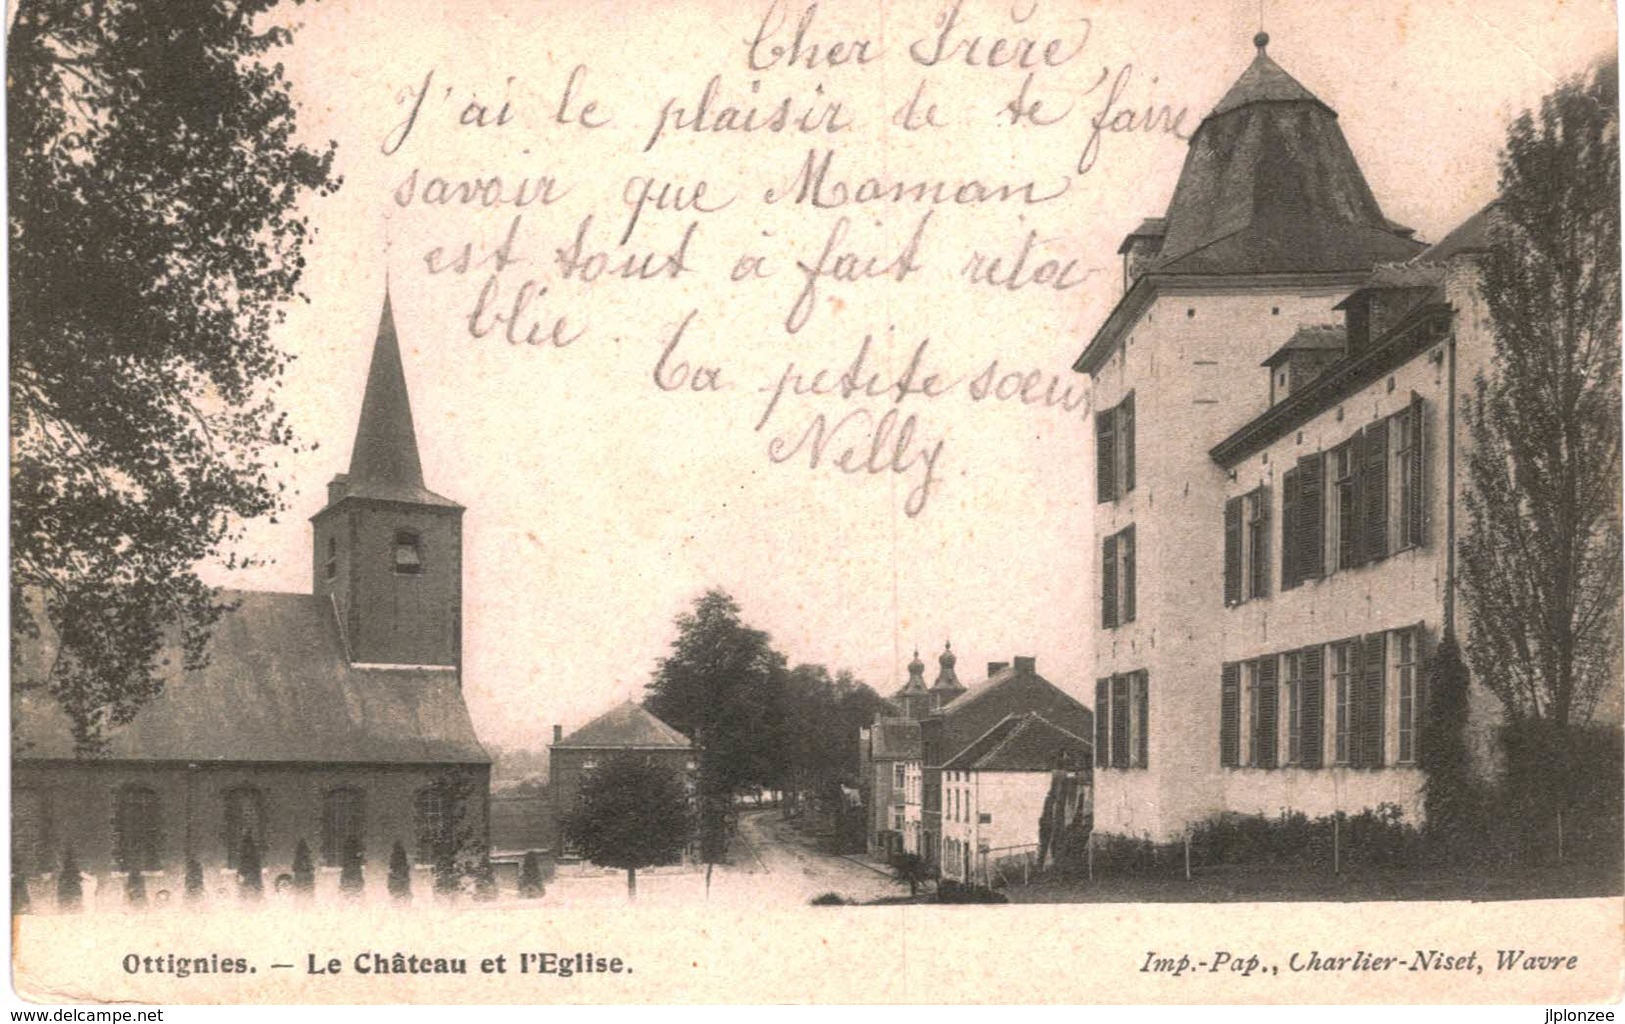 Cher Frère,
J'ai le plaisir de te faire
savoir que Maman
est tout à fait réta-
blie.
Ta petite sœur
Nelly.
Ottignies. — Le Château et l'Eglise.
Imp.-Pap., Charlier-Niset, Wavre
www.delcampe.net
jlplonzee